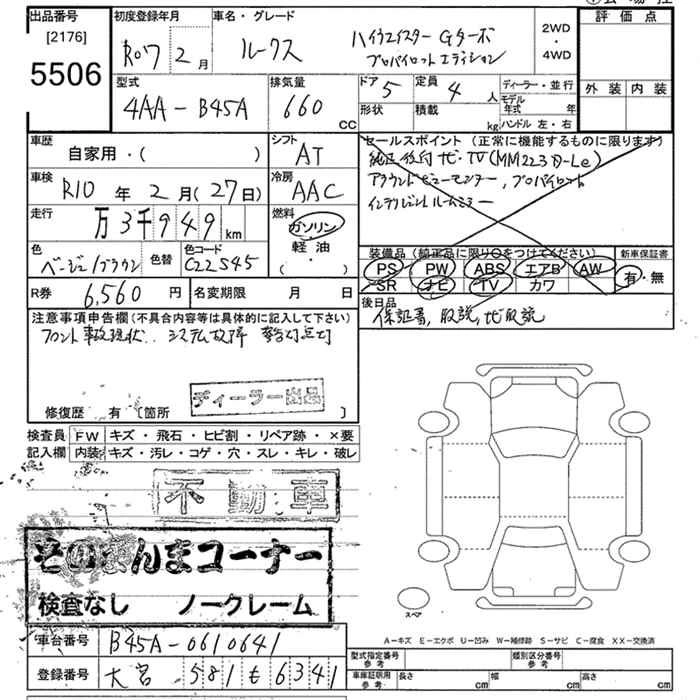 出品番号
[2176]
5506
初度登録年月
R07 2 月
車名・グレード
ルークス
ハイウェイスター Gターボ
プロパイロットエディション
2WD
・
4WD
評価点
外装 内装
型式
4AA-B45A
排気量
660 CC
ドア 5
形状
定員 4 人
積載 kg
ディーラー・並行
モデル年式 年
ハンドル 左・右
車歴
自家用・( )
シフト
AT
車検
R10 年 2 月 (27日)
冷房
AAC
走行
万 3千949 km
燃料
ガソリン
・
軽油
・
( )
色
ベージュ/ブラウン
色替
色コード
C22545
R券 6,560 円
名変期限 月 日
セールスポイント (正常に機能するものに限ります)
アラウンドビューモニター, プロパイロット
インテリジェントルームミラー
装備品 (純正品に限り○をつけてください)
PS PW ABS エアB AW
SR ナビ TV カワ
新車保証書
有・無
後日品
保証書, 取説,
注意事項申告欄 (不具合内容等は具体的に記入して下さい)
フロント事故現状. システム故障 警告灯点灯
ディーラー出品
修復歴 有 [箇所 ]
検査員 FW キズ・飛石・ヒビ割・リペア跡・×要
記入欄 内装 キズ・汚レ・コゲ・穴・スレ・キレ・破レ
不動車
そのまんまコーナー
検査なし ノークレーム
スペア
A-キズ E-エクボ U-凹み W-補修跡 S-サビ C-腐食 XX-交換済
車台番号 B45A-0610641
登録番号 大宮 581 も 6341
型式指定番号 参考
類別区分番号 参考
車庫証明用 参考 長さ cm 幅 cm 高さ cm